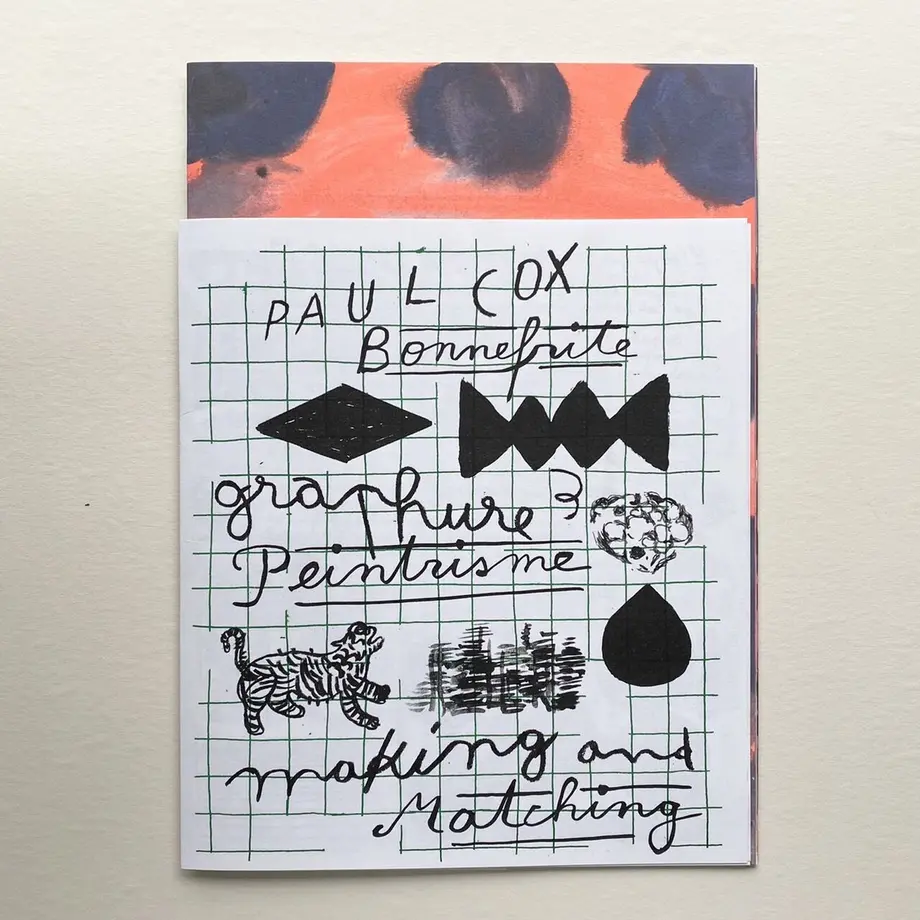 PAUL COX
Bonnefrite
graphure 3
Peintrisme
making and
Matching